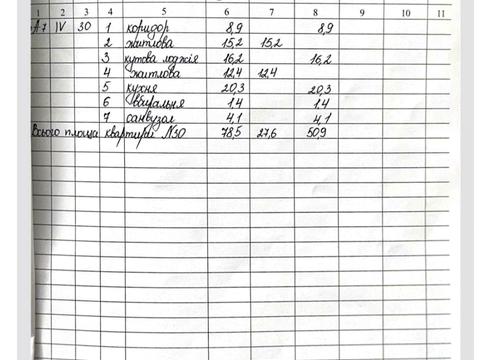 1 2 3 4 5 6 7 8 9 10 11
А7 IV 30 1 коридор 8,9 8,9
2 житлова 15,2 15,2
3 кутова лоджія 16,2 16,2
4 житлова 12,4 12,4
5 кухня 20,3 20,3
6 вбиральня 1,4 1,4
7 санвузол 4,1 4,1
Всього площа квартири №30 78,5 27,6 50,9